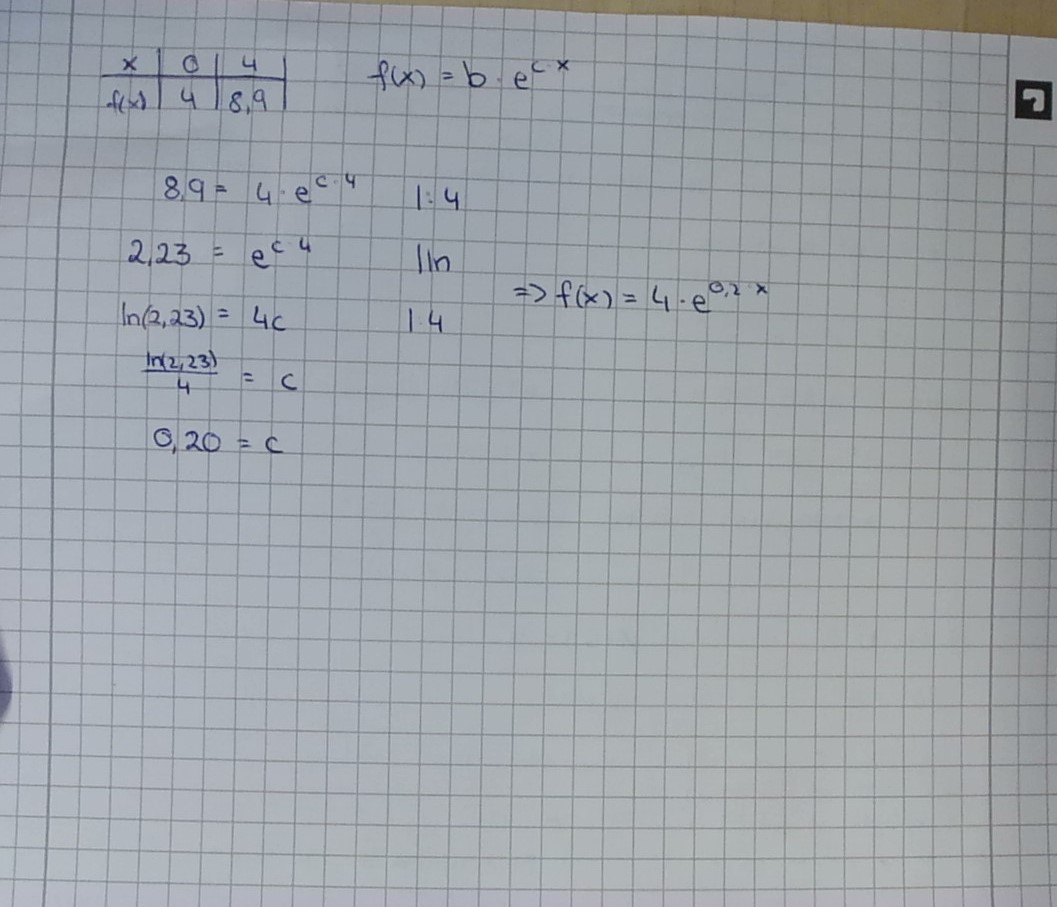 x | 0 | 4
f(x) | 4 | 8,9
f(x) = b · e^(c·x)
8,9 = 4 · e^(c·4) |:4
2,23 = e^(c·4) |ln
ln(2,23) = 4c |:4
ln(2,23)/4 = c
0,20 = c
=> f(x) = 4 · e^(0,2·x)